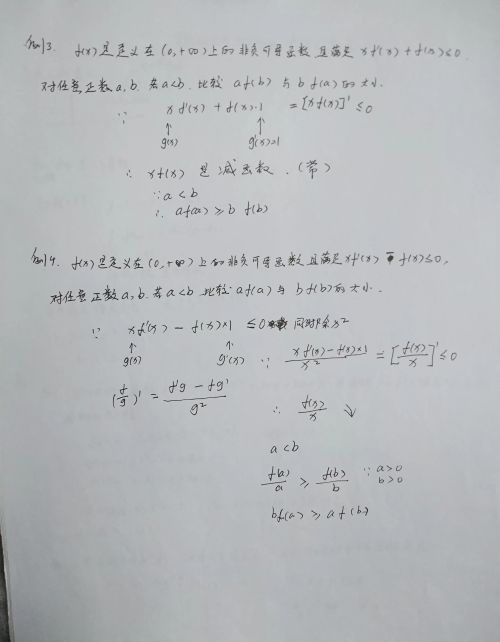 例3. f(x)是定义在(0,+∞)上的非负可导函数且满足 xf'(x)+f(x)≤0.
对任意正数a,b.若a<b.比较 af(b) 与 bf(a) 的大小.
∵ xf'(x) + f(x)·1 = [xf(x)]' ≤0
↑ ↑
g(x) g'(x)=1
∴ xf(x) 是减函数.(常)
∵a<b
∴ af(a) ≥ b f(b)
例4. f(x)是定义在(0,+∞)上的非负可导函数且满足xf'(x) - f(x)≤0,
对任意正数a,b.若a<b 比较 af(a) 与 bf(b)的大小.
∵ xf'(x) - f(x)×1 ≤0 同时除x²
↑ ↑
g(x) g'(x) ∵ xf'(x)-f(x)×1 / x² = [f(x)/x]' ≤0
(f/g)' = f'g - fg' / g²
∴ f(x)/x ↘
a<b
f(a)/a ≥ f(b)/b ∵ a>0
b>0
bf(a) ≥ af(b)